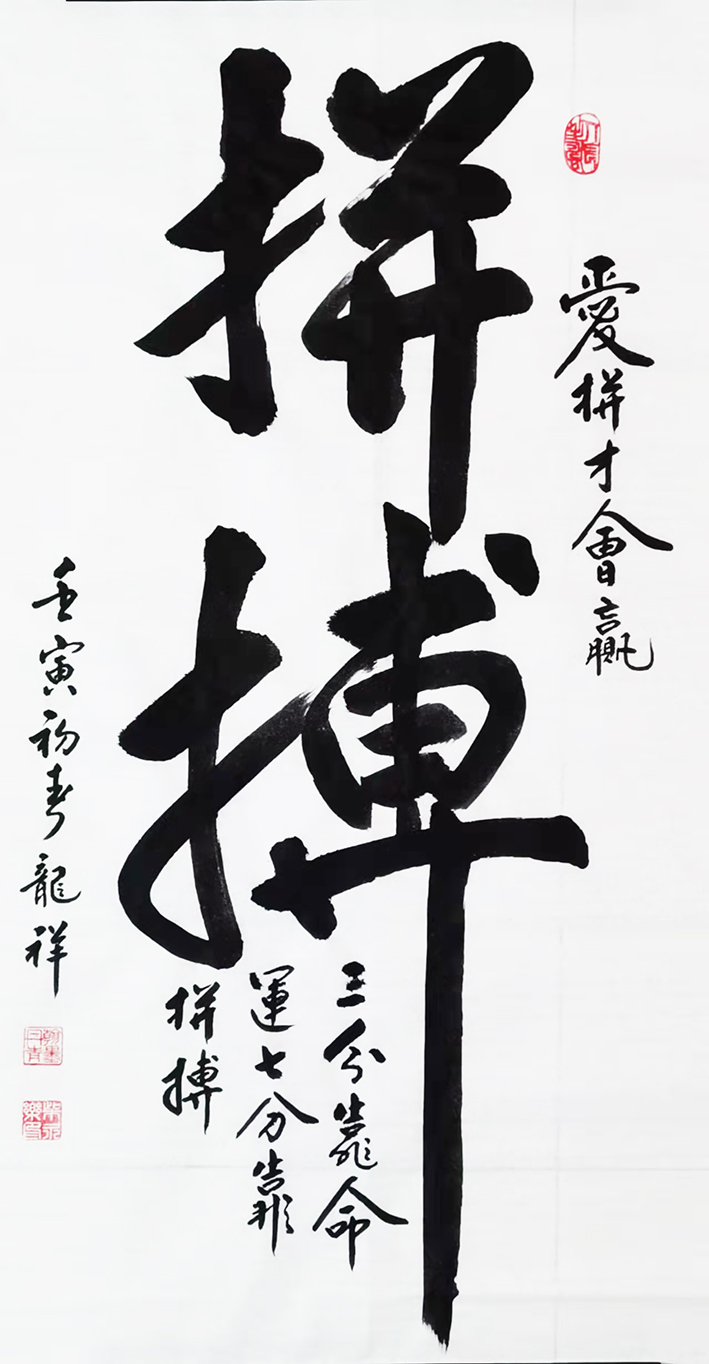 拼搏
愛拼才會贏
三分靠命
運七分靠
拼搏
壬寅初春龍祥